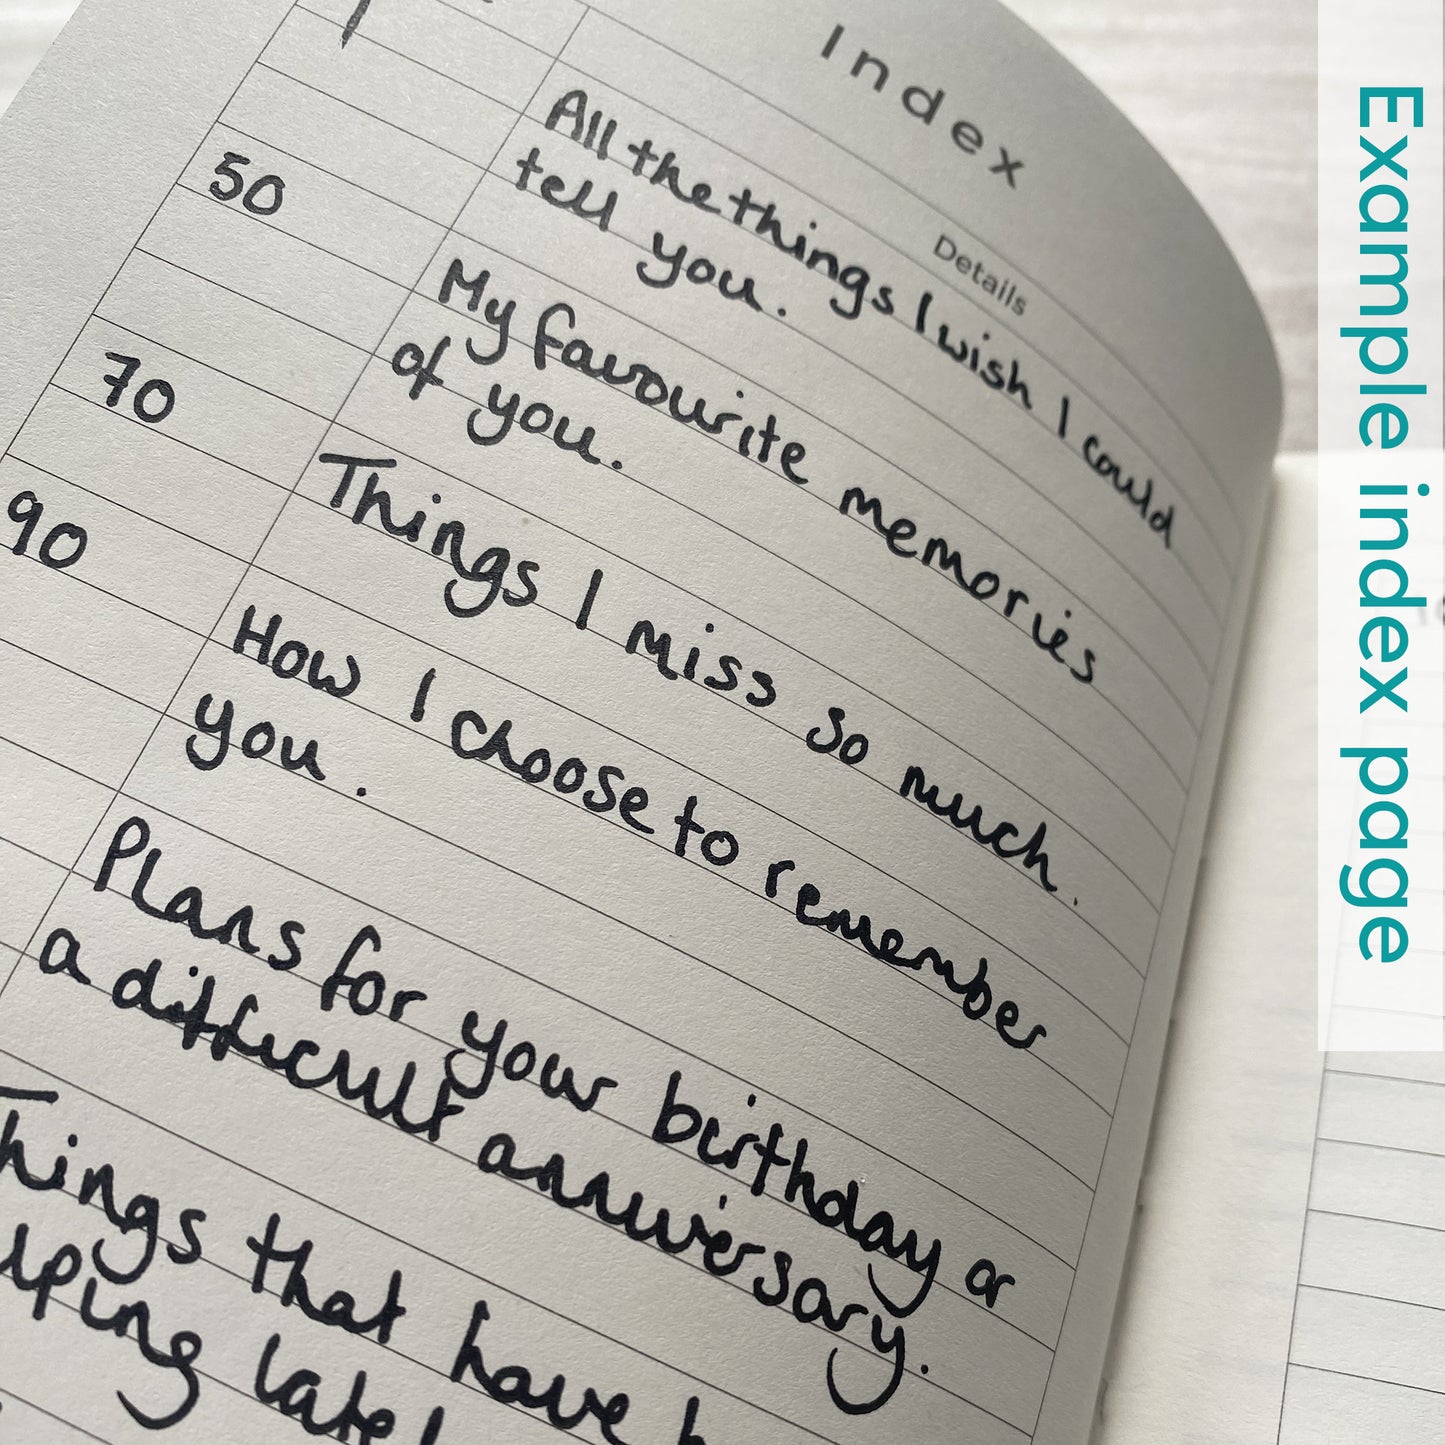 Index
Details
All the things I wish I could
tell you.
50 My favourite memories
of you.
70 Things I miss so much.
90 How I choose to remember
you.
Plans for your birthday or
a difficult anniversary.
Things that have
late
Example index page